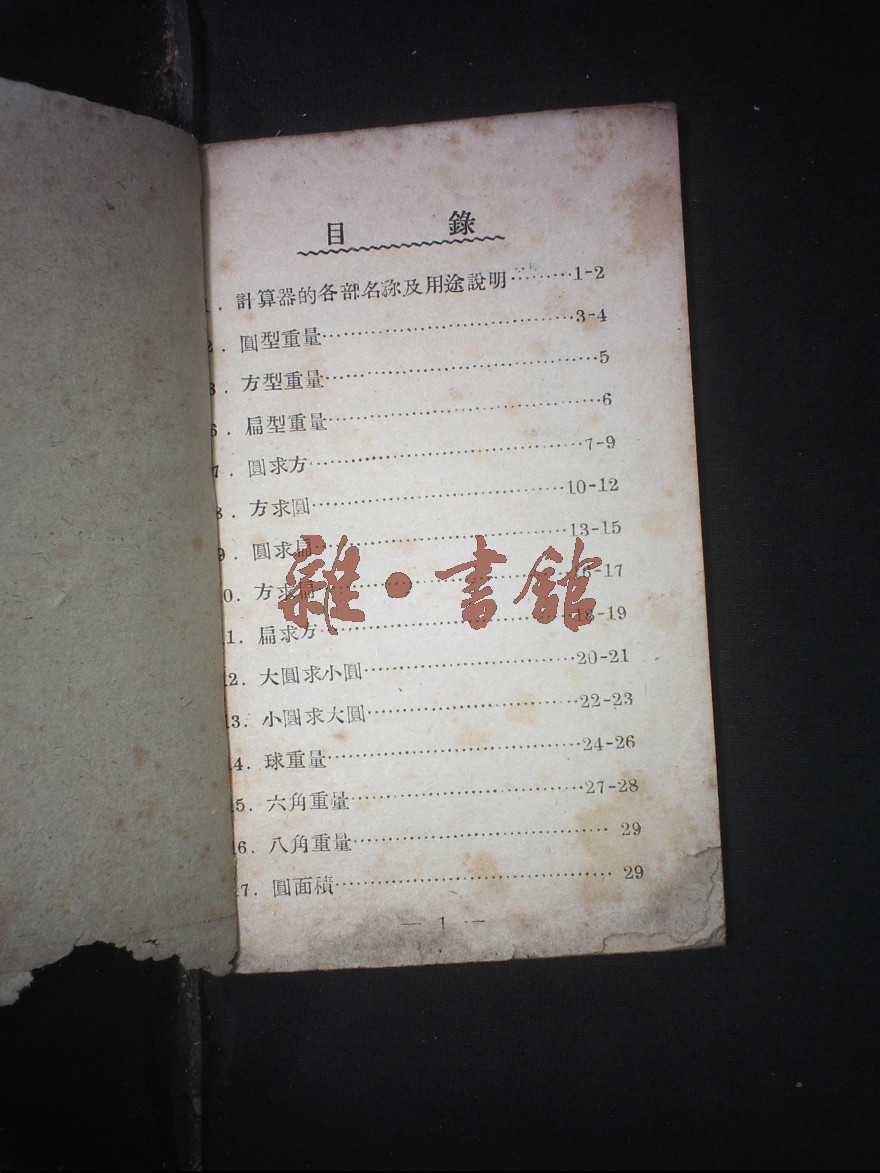 目 錄
1. 計算器的各部名称及用途說明………1-2
2. 圓型重量……………………………3-4
3. 方型重量………………………………5
6. 扁型重量………………………………6
7. 圓求方………………………………7-9
8. 方求圓……………………………10-12
9. 圓求扁……………………………13-15
10. 方求扁……………………………16-17
11. 扁求方……………………………18-19
12. 大圓求小圓………………………20-21
13. 小圓求大圓………………………22-23
14. 球重量……………………………24-26
15. 六角重量…………………………27-28
16. 八角重量……………………………… 29
17. 圓面積………………………………… 29
— 1 —
雜·書館